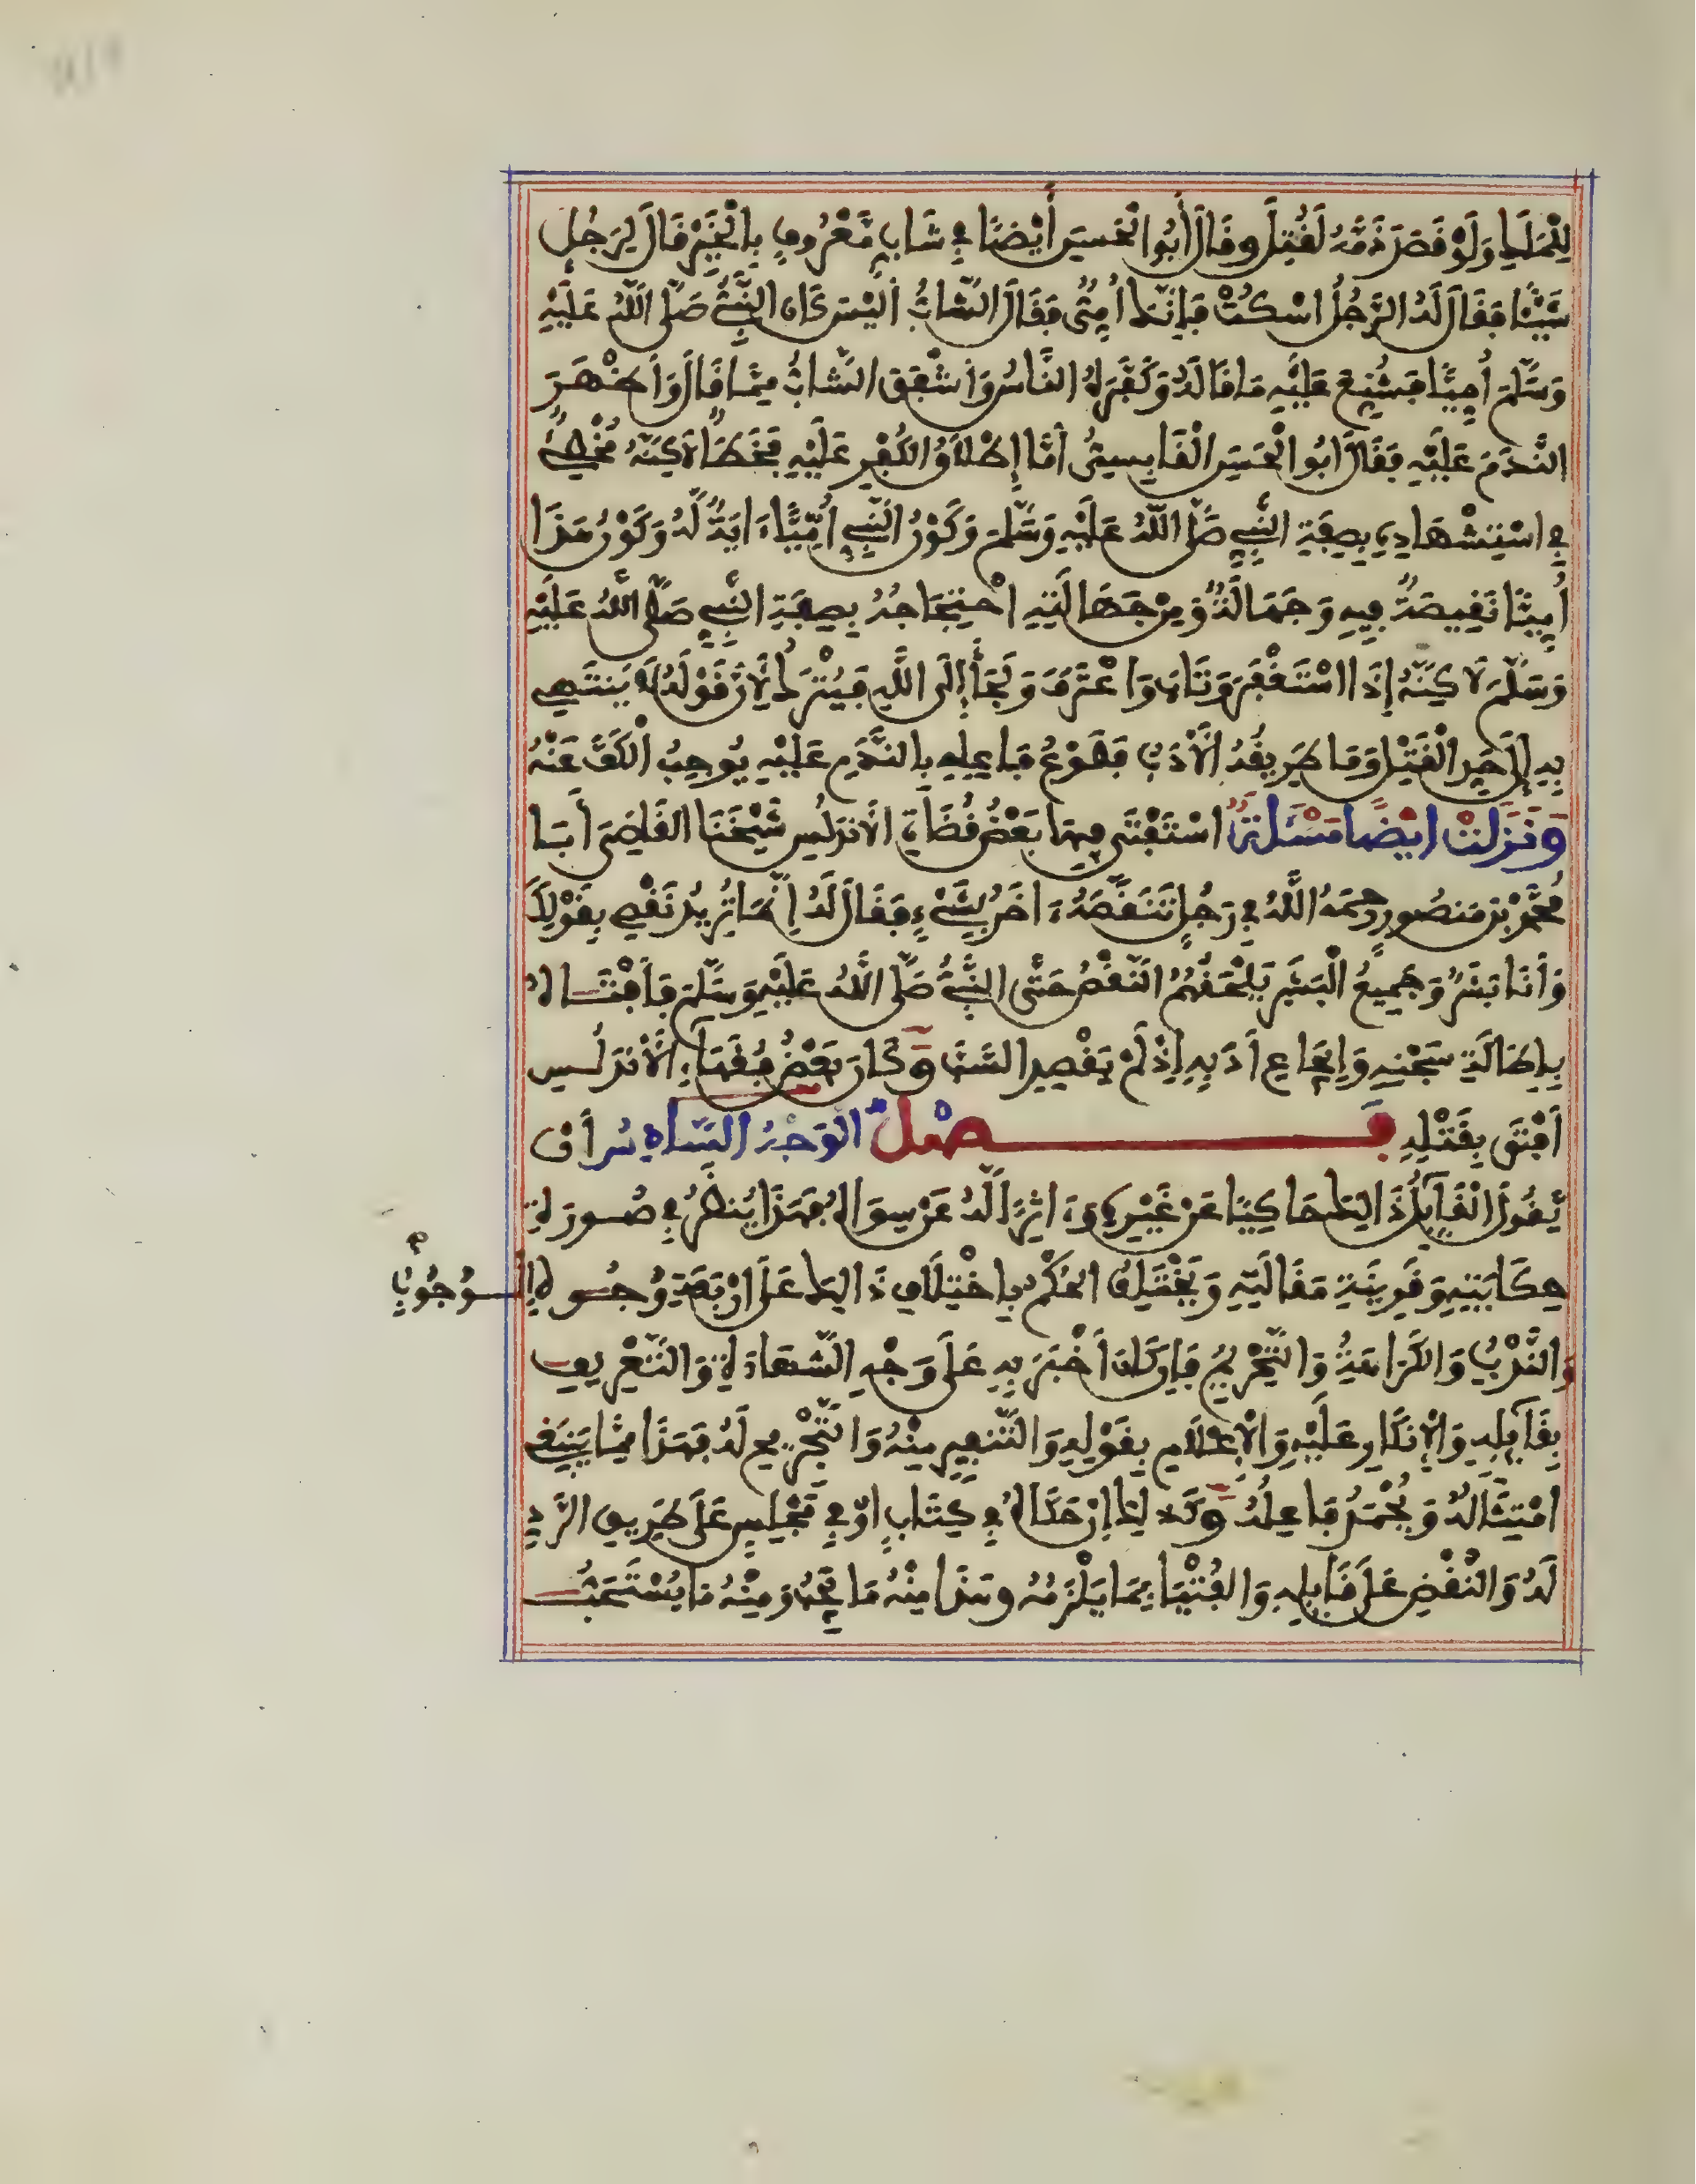 لِلْمَلَكِ وَلَوْ قَصَدَ ذَمَّهُ لَقُتِلَ وقَالَ أَبُو الْحَسَنِ أَيْضًا فِي شَابٍّ مَعْرُوفٍ بِالْخَيْرِ قَالَ لِرَجُلٍ
شَيْئًا فَقَالَ لَهُ الرَّجُلُ اسْكُتْ فَإِنَّكَ أُمِّيٌّ فَقَالَ الشَّابُّ أَلَيْسَ كَانَ النَّبِيُّ صَلَّى اللَّهُ عَلَيْهِ
وَسَلَّمَ أُمِّيًّا فَشُنِّعَ عَلَيْهِ مَا قَالَهُ وَكَفَّرَهُ النَّاسُ وَأَشْفَقَ الشَّابُّ مِمَّا قَالَ وَأَظْهَرَ
النَّدَمَ عَلَيْهِ فَقَالَ أَبُو الْحَسَنِ الْقَابِسِيُّ أَمَّا إِطْلَاقُ الْكُفْرِ عَلَيْهِ فَخَطَأٌ لَاكِنَّهُ مُخْطِئٌ
فِي اسْتِشْهَادِهِ بِصِفَةِ النَّبِيِّ صَلَّى اللَّهُ عَلَيْهِ وَسَلَّمَ وَكَوْنُ النَّبِيِّ أُمِّيًّا ءَايَةٌ لَهُ وَكَوْنُ هَذَا
أُمِّيًّا نَقِيصَةٌ فِيهِ وَجَهَالَةٌ وَمِنْ جَهَالَتِهِ احْتِجَاجُهُ بِصِفَةِ النَّبِيِّ صَلَّى اللَّهُ عَلَيْهِ
وَسَلَّمَ لَاكِنَّهُ إِذَا اسْتَغْفَرَ وَتَابَ وَاعْتَرَفَ وَلَجَأَ إِلَى اللَّهِ فَيُتْرَكُ لِأَنَّ قَوْلَهُ لَا يَنتَهِي
بِهِ إِلَى حَدِّ الْقَتْلِ وَمَا طَرِيقُهُ الْأَدَبُ فَطَوْعُ فَاعِلِهِ بِالنَّدَمِ عَلَيْهِ يُوجِبُ الْكَفَّ عَنْهُ
وَنَزَلَتْ أَيْضًا مَسْئَلَةٌ اسْتَفْتَى فِيهَا بَعْضُ قُضَاةِ الْأَنْدَلُسِ شَيْخَنَا الْقَاضِيَ أَبَا
مُحَمَّدِ بْنَ مَنصُورٍ رَحِمَهُ اللَّهُ فِي رَجُلٍ تَنَقَّصَهُ ءَاخَرُ بِشَيْءٍ فَقَالَ لَهُ إِنَّمَا تُرِيدُ نَقْصِي بِقَوْلِكَ
وَأَنَا بَشَرٌ وَجَمِيعُ الْبَشَرِ يَلْحَقُهُمُ النَّقْصُ حَتَّى النَّبِيُّ صَلَّى اللَّهُ عَلَيْهِ وَسَلَّمَ فَأَفْتَاهُ
بِإِطَالَةِ سَجْنِهِ وَإِيجَاعِ أَدَبِهِ إِذْ لَمْ يَقْصِدِ السَّبَّ وَكَانَ بَعْضُ فُقَهَاءِ الْأَنْدَلُسِ
أَفْتَى بِقَتْلِهِ فَصْلٌ الْوَجْهُ السَّادِسُ أَن
يَقُولَ الْقَائِلُ ذَالِكَ حَاكِيًا عَنْ غَيْرِهِ وَءَاثِرًا لَهُ عَنْ سِوَاهُ فَهَذَا يُنظَرُ فِي صُورَةِ
حِكَايَتِهِ وَقَرِينَةِ مَقَالَتِهِ وَيَخْتَلِفُ الْحُكْمُ بِاخْتِلَافِ ذَالِكَ عَلَى أَرْبَعَةِ وُجُوهٍ الْوُجُوبِ
وَالنَّدْبِ وَالْكَرَاهَةِ وَالتَّحْرِيمِ فَإِن كَانَ أَخْبَرَ بِهِ عَلَى وَجْهِ الشَّهَادَةِ وَالتَّعْرِيفِ
بِقَائِلِهِ وَالْإِنكَارِ عَلَيْهِ وَالْإِعْلَامِ بِقَوْلِهِ وَالتَّنفِيرِ مِنْهُ وَالتَّجْرِيحِ لَهُ فَهَذَا مِمَّا يَنبَغِي
امْتِثَالُهُ وَيُحْمَدُ فَاعِلُهُ وَكَذَلِكَ إِنْ حَكَاهُ فِي كِتَابٍ أَوْ فِي مَجْلِسٍ عَلَى طَرِيقِ الرَّدِّ
لَهُ وَالنَّقْضِ عَلَى قَائِلِهِ وَالْفُتْيَا بِمَا يَلْزَمُهُ وهَذَا مِنْهُ مَا يَجِبُ وَمِنْهُ مَا يُسْتَحَبُّ